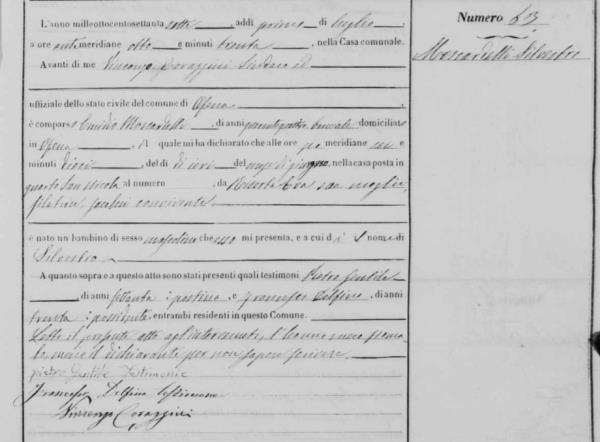 L'anno milleottocentosettanta sette, addì primo di luglio,
a ore anti meridiane otto e minuti trenta, nella Casa comunale.
Avanti di me Vincenzo Corazzini Sindaco ed
uffiziale dello stato civile del comune di Ofena
è comparso Emidio Moscardelli, di anni domiciliato
in Ofena, il quale mi ha dichiarato che alle ore po meridiane e
minuti dieci, del dì di ieri del mese di giugno, nella casa posta in
San Nicola al numero, da sua moglie
filatrice convivente
è nato un bambino di sesso mascolino che esso mi presenta, e a cui dà il nome di
Silvestro
A quanto sopra e a questo atto sono stati presenti quali testimoni Pietro Gentile
di anni settanta, e Francesco Delfino, di anni
trenta possidente, entrambi residenti in questo Comune.
Letto il presente atto agl'intervenuti, l'hanno meco firma-
to, meno il dichiarante per non sapere scrivere.
pietro Gentile Testimonie
Francesco Delfino testimone
Vincenzo Corazzini
Numero 63
Moscardelli Silvestro